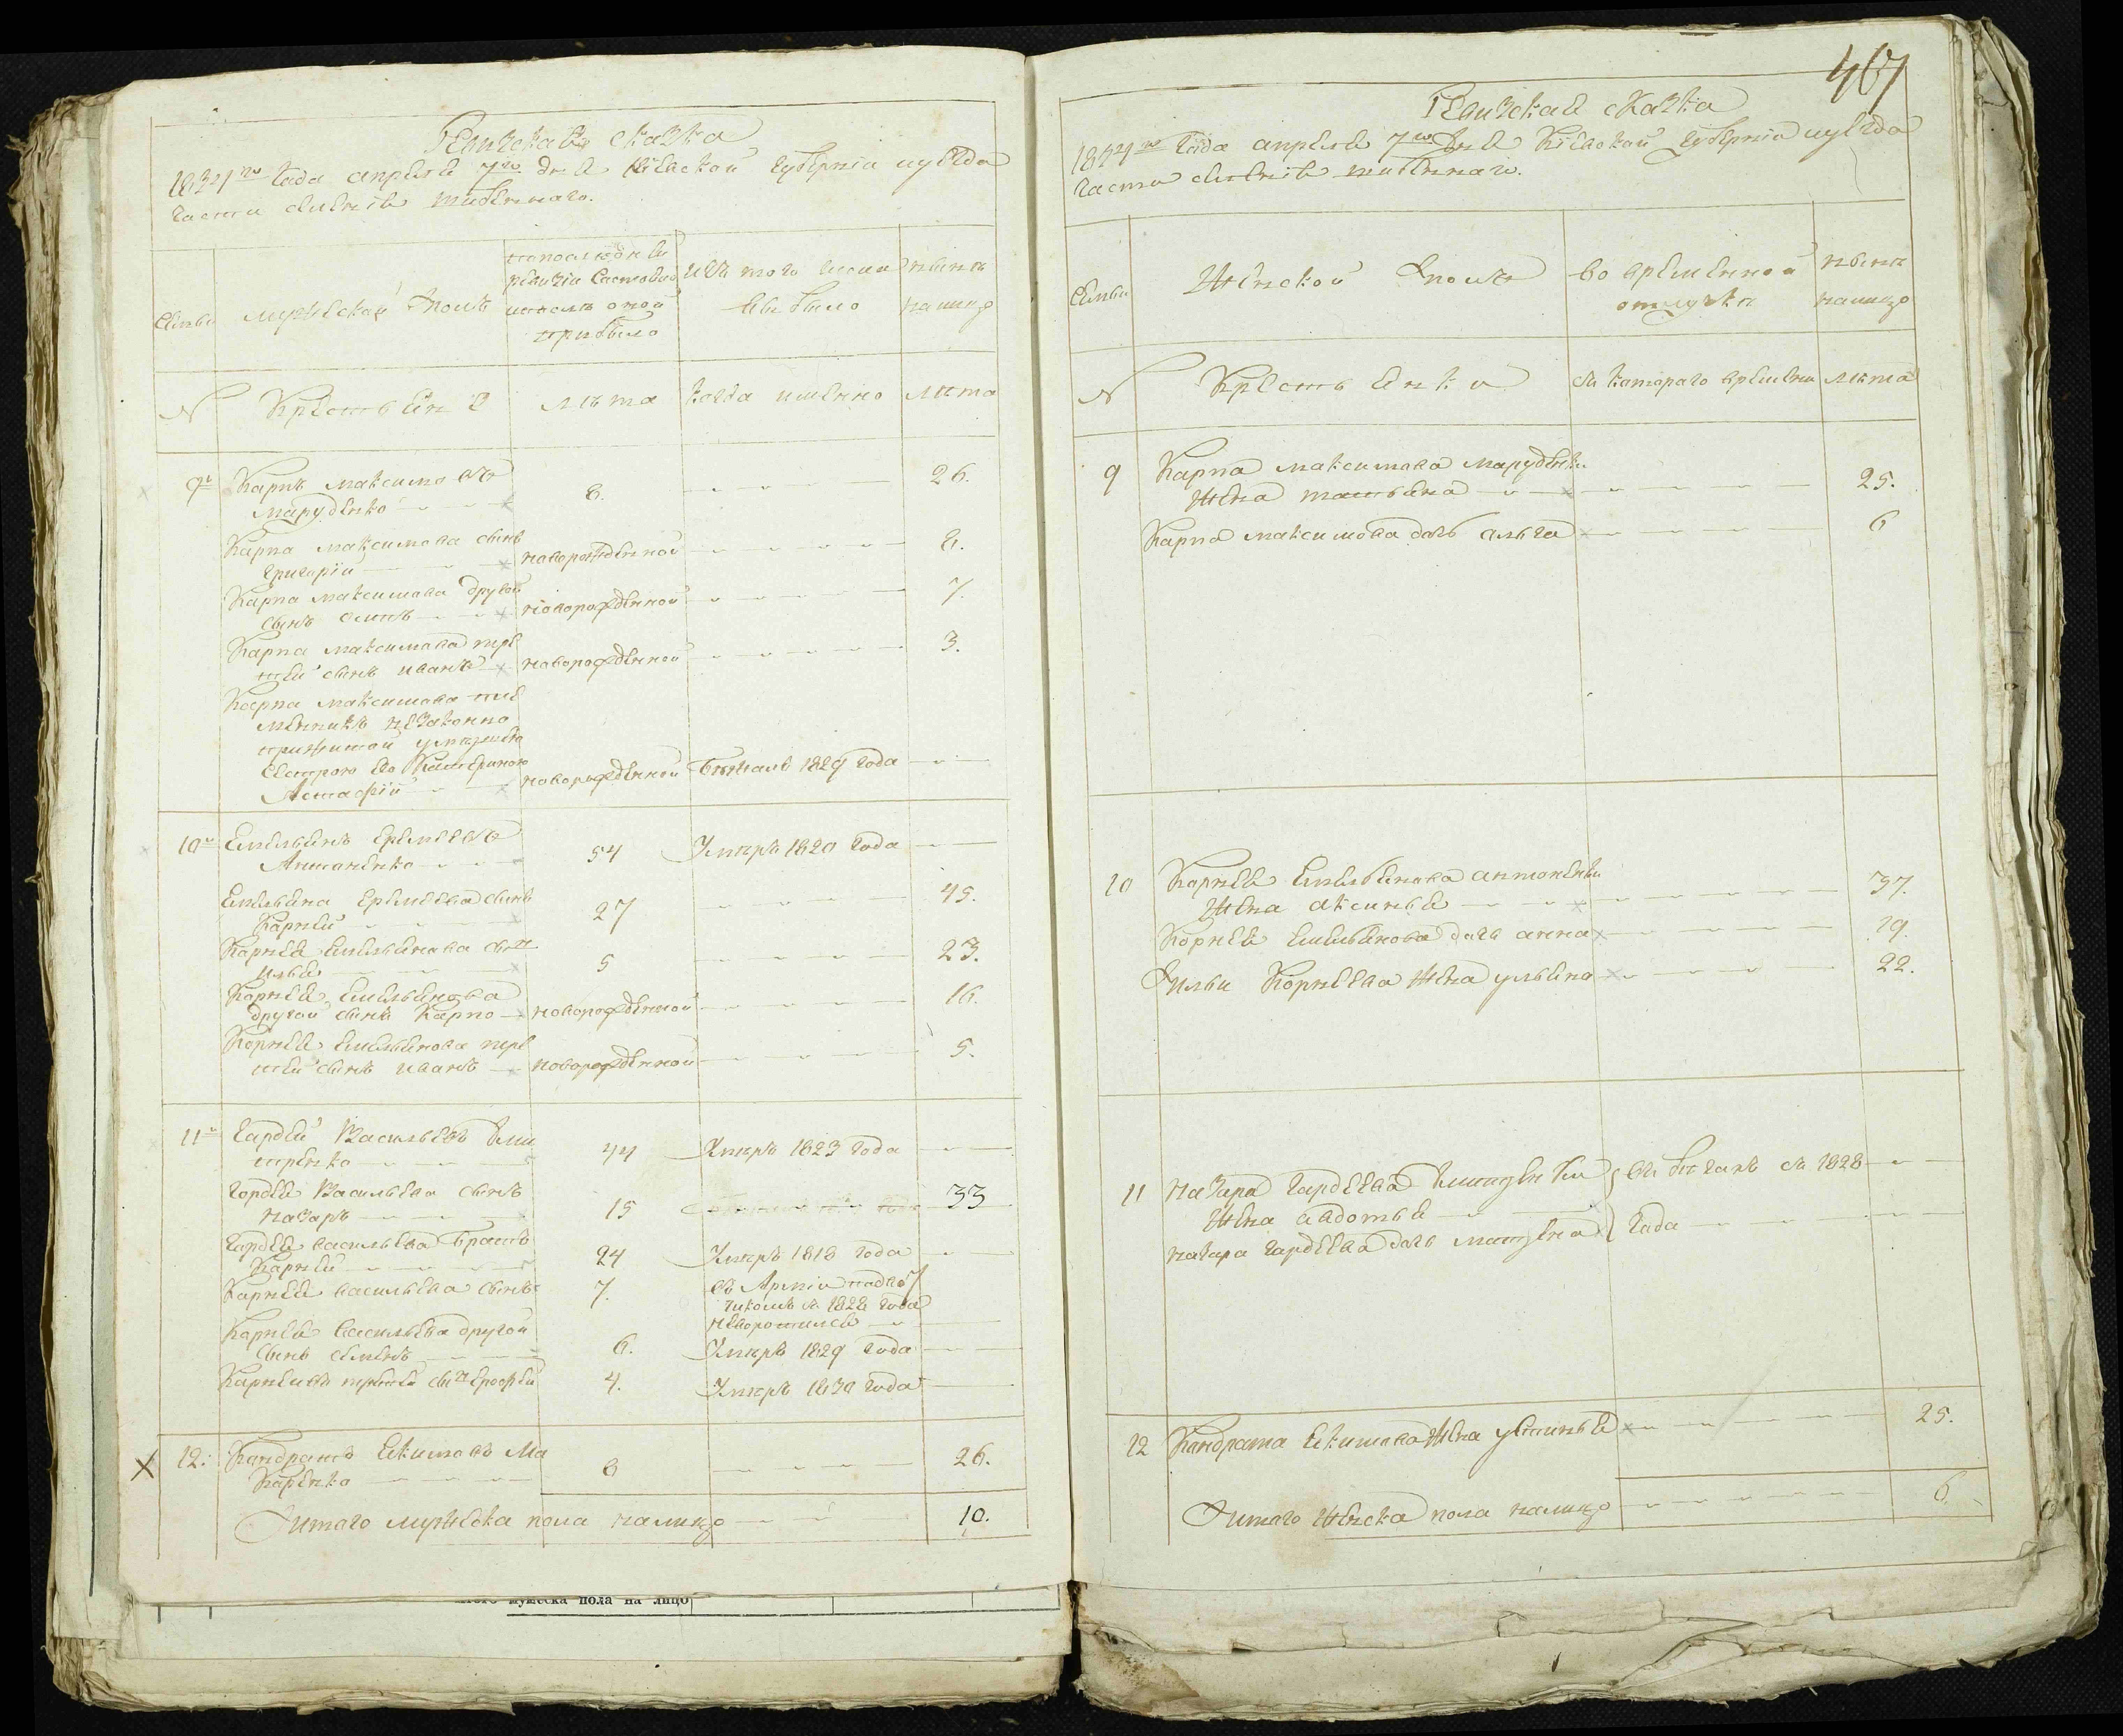 Ревизская сказка
1834го Года апреля 7го дня Кіевской Губерніи уезда
Семьи
мужеской полъ
по последней
ревизіи состояло
и после оной
прибыло
изъ того числа
выбыло
ныне
налицо
№
Крестьяне
лета
когда именно
лета
9
Карпъ Максимовъ
Маруденко
8.
26.
Карпа Максимова сынъ
Григорій
новорожденной
8.
Карпа Максимова другой
сынъ
новорожденной
7.
Карпа Максимова тре
тей сынъ иванъ
новорожденной
3.
Карпа Максимова пле
менникъ незаконно
прижитой
сестрою его Катериною
Астафій
новорожденной
бежалъ 1829 года
10
Емельянъ Еремеевъ
Антоненко
54
Умеръ 1820 Года
Емельяна Еремеева сынъ
Карней
27
45.
Карнея Емельянова сы
илья
5
23.
Корнея Емельянова
другой сынъ Карпо
новорожденной
16.
Корнея Емельянова тре
тей сынъ иванъ
новорожденной
5.
11
Гардей Васильевъ Дми
тренко
44
Умеръ 1823 года
Гордея Васильева сынъ
Назаръ
15
33
Гардея васильева братъ
Карней
24
Умеръ 1818 года
Карнея васильева сынъ
7.
въ Арміи
1828 года
Карнея Васильева другой
сынъ семенъ
6.
Умеръ 1829 года
4.
Умеръ 1830 года
12.
Кандратъ Екимовъ Ма
Каренко
8
26.
Итого мужеска пола налицо
10.
того мужеска пола на лицо
467
Ревизская сказка
1834го Года апреля 7го Дня Кіевской Губерніи уезда
Семьи
Женской полъ
во временной
отлучки
ныне
налицо
№
Крестьянки
съ котораго времени
лета
9
Карпа максимова маруденки
жена татьяна
25.
Карпа максимова дочь ольга
6
10
Корнея Емельянова антоненки
Жена аксинья
37.
Корнея Емельянова дочь анна
19.
Ильи Корнеева Жена ульяна
22.
11
Назара Гардеева
Жена авдотья
въ бегахъ съ 1828
Назара Гардеева дочь
Года
12
Кандрата Екимова Жена устинья
25.
Итого Женска пола налицо
6.